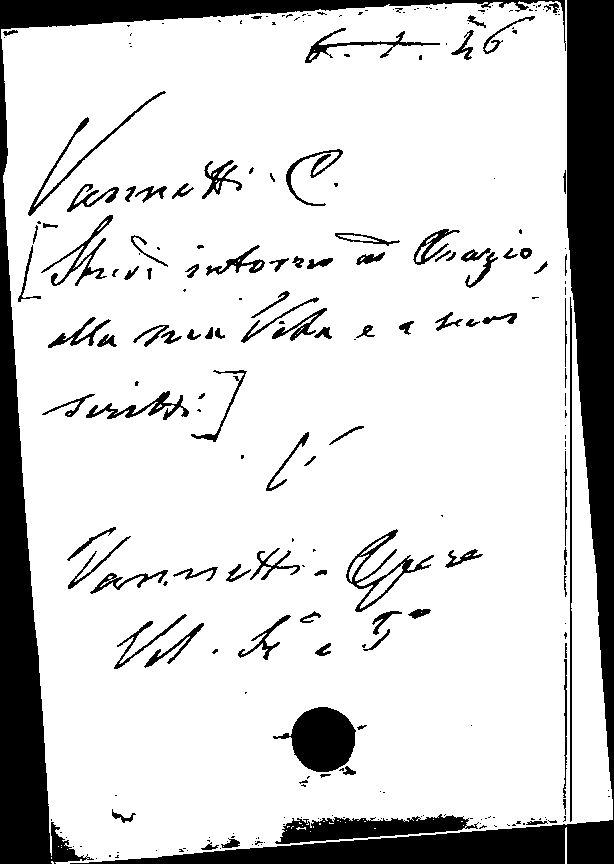 6. 1. 46
Vannetti C.
[Studi intorno ad Orazio,
alla sua Vita e a suoi
scritti.]
Vannetti - Opere
Vol. 4º e 5º